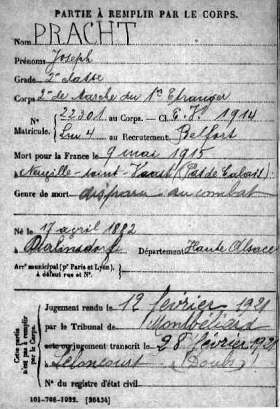 PARTIE À REMPLIR PAR LE CORPS.
Nom PRACHT
Prénoms Joseph
Grade 2e classe
Corps 2e de Marche du 1er Etranger
N° 22301 au Corps. — Cl. 1914
Matricule. 4 au Recrutement Belfort
Mort pour la France le 9 mai 1915
à Neuville-Saint-Vaast (Pas de Calais)
Genre de mort disparu au combat
Né le 17 avril 1882
à Département Haute Alsace
Arrt municipal (pr Paris et Lyon),
à défaut rue et N°.
Cette partie n'est pas à remplir par le Corps.
Jugement rendu le 12 février 1921
par le Tribunal de Montbéliard
jugement transcrit le 28 février 1921
à Seloncourt (Doubs)
N° du registre d'état civil.
101-708-1922. [26434]